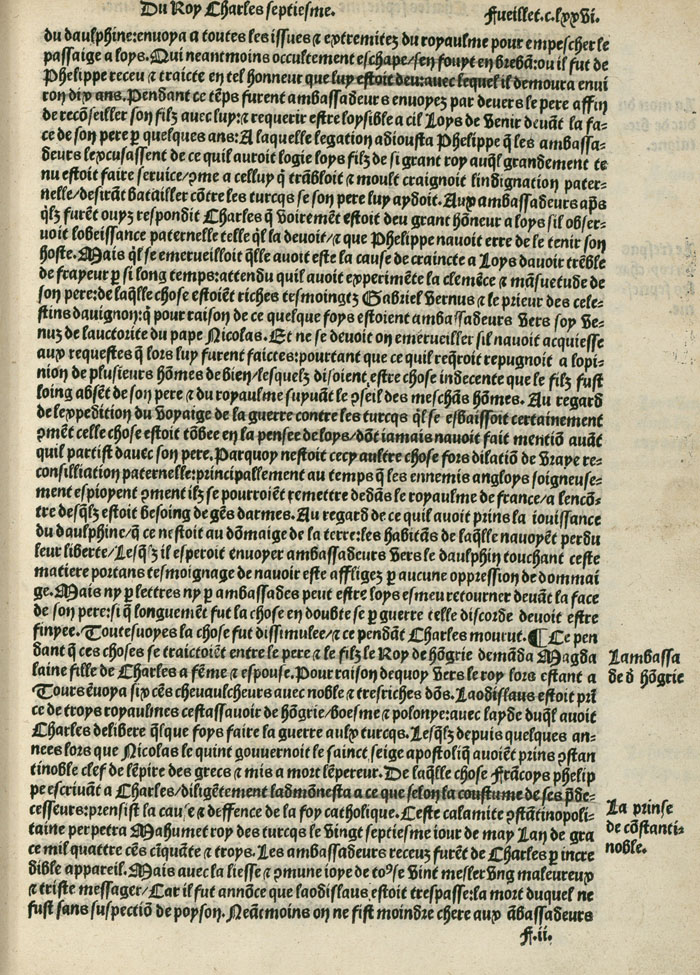 Du Roy Charles septiesme.
Fueillet.c.lxxvi.
du daulphine:enuoya a toutes les issues ⁊ extremitez du royaulme pour empescher le
passaige a loys. Qui neantmoins occultement eschape/sen fouyt en brebãt:ou il fut de
Phelippe receu ⁊ traicte en tel honneur que luy estoit deu:auec lequel il demoura enui
ron dix ans. Pendant ce tẽps furent ambassadeurs enuoyez par deuers le pere affin
de recõseiller son filz auec luy:⁊ requerir estre loysible a cil Loys de venir deuãt la fa⸗
ce de son pere ꝑ quelques ans: A laquelle legation adiousta Phelippe q̃ les ambassa⸗
deurs lexcusassent de ce quil auroit logie loys filz de si grant roy auq̃l grandement te
nu estoit faire seruice/ꝯme a celluy q̃ trãbloit ⁊ moult craignoit lindignation pater⸗
nelle/desirãt batailler cõtre les turcqs se son pere luy aydoit. Aux ambassadeurs ap̃s
q̃lz furẽt ouyz respondit Charles q̃ voiremẽt estoit deu grant hõneur a loys sil obser⸗
uoit lobeissance paternelle telle q̃l la deuoit/⁊ que Phelippe nauoit erre de le tenir son
hoste. Mais q̃l se emerueilloit q̃lle auoit este la cause de craincte a Loys dauoir trẽble
de frayeur ꝑ si long temps:attendu quil auoit experimẽte la clemẽce ⁊ mãsuetude de
son pere:de laq̃lle chose estoiẽt riches tesmoingtz Gabriel Vernus ⁊ le prieur des cele⸗
stins dauignon:q̃ pour raison de ce quelque foys estoient ambassadeurs vers soy ve⸗
nuz de lauctorite du pape Nicolas. Et ne se deuoit on emerueiller sil nauoit acquiesse
aux requestes q̃ lors luy furent faictes:pourtant que ce quil req̃roit repugnoit a lopi⸗
nion de plusieurs hõmes de bien/lesquelz disoient estre chose indecente que le filz fust
loing absẽt de son pere ⁊ du royaulme suyuãt le ꝯseil des meschãs hõmes. Au regard
de lexpedition du voyaige de la guerre contre les turcqs q̃l se esbaissoit certainement
ꝯmẽt celle chose estoit tõbee en la pensee de loys/dõt iamais nauoit fait mentiõ auãt
quil partist dauec son pere. Parquoy nestoit cecy aultre chose fors dilatiõ de vraye re⸗
consilliation paternelle:principallement au temps q̃ les ennemis angloys soigneuse⸗
ment espioyent ꝯment ilz se pourroiẽt remettre dedãs le royaulme de france/a lencõ⸗
tre desq̃lz estoit besoing de gẽs darmes. Au regard de ce quil auoit prins la iouissance
du daulphine/q̃ ce nestoit au dõmaige de la terre:les habitãs de laq̃lle nauoyẽt perdu
leur liberte/Lesq̃lz il esperoit enuoyer ambassadeurs vers le daulphin touchant ceste
matiere portans tesmoignage de nauoir este affligez ꝑ aucune oppression de dommai
ge. Mais ny ꝑ lettres ny ꝑ ambassades peut estre loys esmeu retourner deuãt la face
de son pere:si q̃ longuemẽt fut la chose en doubte se ꝑ guerre telle discorde deuoit estre
finyee. Toutesuoyes la chose fut dissimulee/⁊ ce pendãt Charles mourut. ¶ Ce pen
dãt q̃ ces choses se traictoiẽt entre le pere ⁊ le filz le Roy de hõgrie demãda Magda
laine fille de Charles a fẽme ⁊ espouse. Pour raison dequoy vers le roy lors estant a
Tours ẽuoya six cẽs cheuaulcheurs auec noble ⁊ tresriches dõs. Laodislaus estoit prĩ
ce de troys royaulmes cestassauoir de hõgrie/boesme ⁊ polonye:auec layde duq̃l auoit
Charles delibere q̃lque foys faire la guerre aulx turcqs. Lesq̃lz depuis quelques an⸗
nees lors que Nicolas le quint gouuernoit le sainct seige apostoliq̃ auoiẽt prins ꝯstan
tinoble clef de lẽpire des grecs ⁊ mis a mort lẽpereur. De laq̃lle chose Frãcoys phelip
pe escriuãt a Charles/diligẽtement ladmõnesta a ce que selon la coustume de ses p̃de⸗
cesseurs:prensist la cause ⁊ deffence de la foy catholique. Ceste calamite ꝯstãtinopoli⸗
taine perpetra Mahumet roy des turcqs le vingt septiesme iour de may Lan de gra
ce mil quattre cẽs cĩquãte ⁊ troys. Les ambassadeurs receuz furẽt de Charles ꝑ incre
dible appareil. Mais auec la liesse ⁊ ꝯmune ioye de toꝰse vint mesler vng maleureux
⁊ triste messager/Car il fut annõce que laodislaus estoit trespasse:la mort duquel ne
fust sans suspectiõ de poyson. Neãtmoins on ne fist moindre chere aux ãbassadeurs
Lambassa
de d̃ hõgrie
La prinse
de cõstanti⸗
noble.
ff.ii.